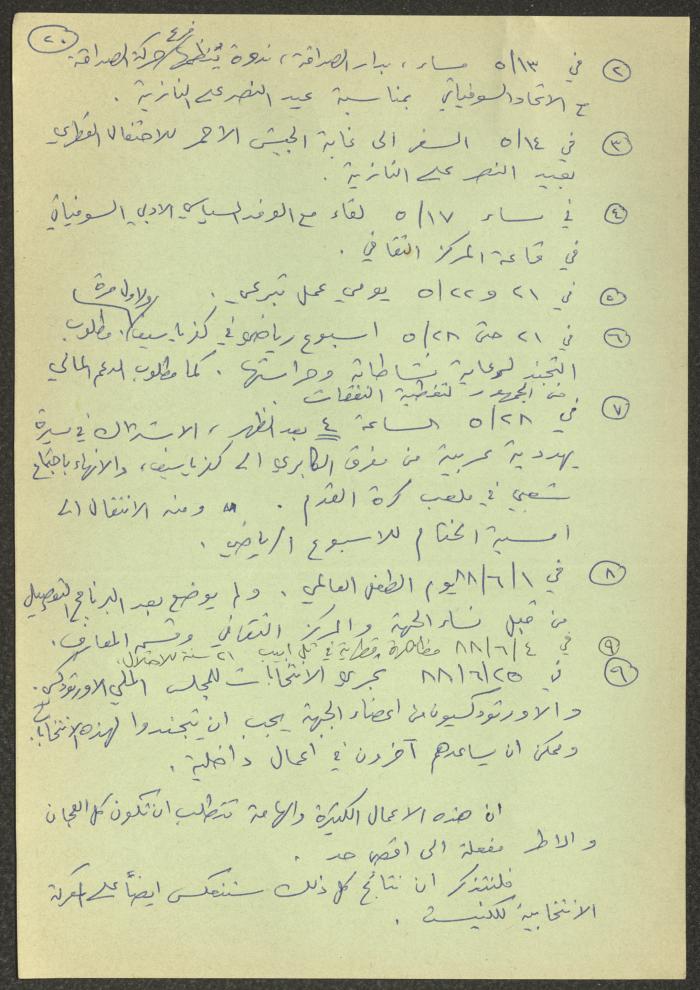 ٢٠
٢ في ٥/١٣ مساء، بدار الصداقة، ندوة يُنظمها فرع حركة الصداقة
مع الاتحاد السوفياتي بمناسبة عيد النصر على النازية .
٣ في ٥/١٤ السفر الى غابة الجيش الاحمر للاحتفال القطري
بعيد النصر على النازية .
٤ في مساء ٥/١٧ لقاء مع الوفد السياسي الادبي السوفياتي
في قاعة المركز الثقافي .
٥ في ٢١ و ٥/٢٢ يومي عمل تبرعي .
ولاول مرة
٦ في ٢١ حتى ٥/٢٨ اسبوع رياضي في كفر ياسيف . مطلوب
التجند لرعاية نشاطاته وحراستها . كما مطلوب الدعم المالي
من الجمهور لتغطية النفقات .
٧ في ٥/٢٨ الساعة ٤ بعد الظهر، الاشتراك في مسيرة
يهودية عربية من مفرق الكابري الى كفر ياسيف، والانهاء باجتماع
شعبي في ملعب كرة القدم . ومنه الانتقال الى
امسية الختام للاسبوع الرياضي .
٨ في ٨٨/٦/١ يوم الطفل العالمي . ولم يوضع بعد البرنامج التفصيلي
من قبل نساء الجبهة والمركز الثقافي وقسم المعارف .
٩ في ٨٨/٦/٤ مظاهرة قطرية في تل ابيب ٢١ سنة للاحتلال .
٩ في ٨٨/٦/٢٥ تجري الانتخابات للمجلس الملي الاورثوذكسي .
والاورثوذكسيون من اعضاء الجبهة يجب ان يتجندوا لهذه الانتخابات
وممكن ان يساعدهم آخرون في اعمال داخلية .
ان هذه الاعمال الكثيرة والهامة تتطلب ان تكون كل اللجان
والاطر مفعلة الى اقصى حد .
فلنتذكر ان نتائج كل ذلك ستنعكس ايضاً على المعركة
الانتخابية للكنيست .